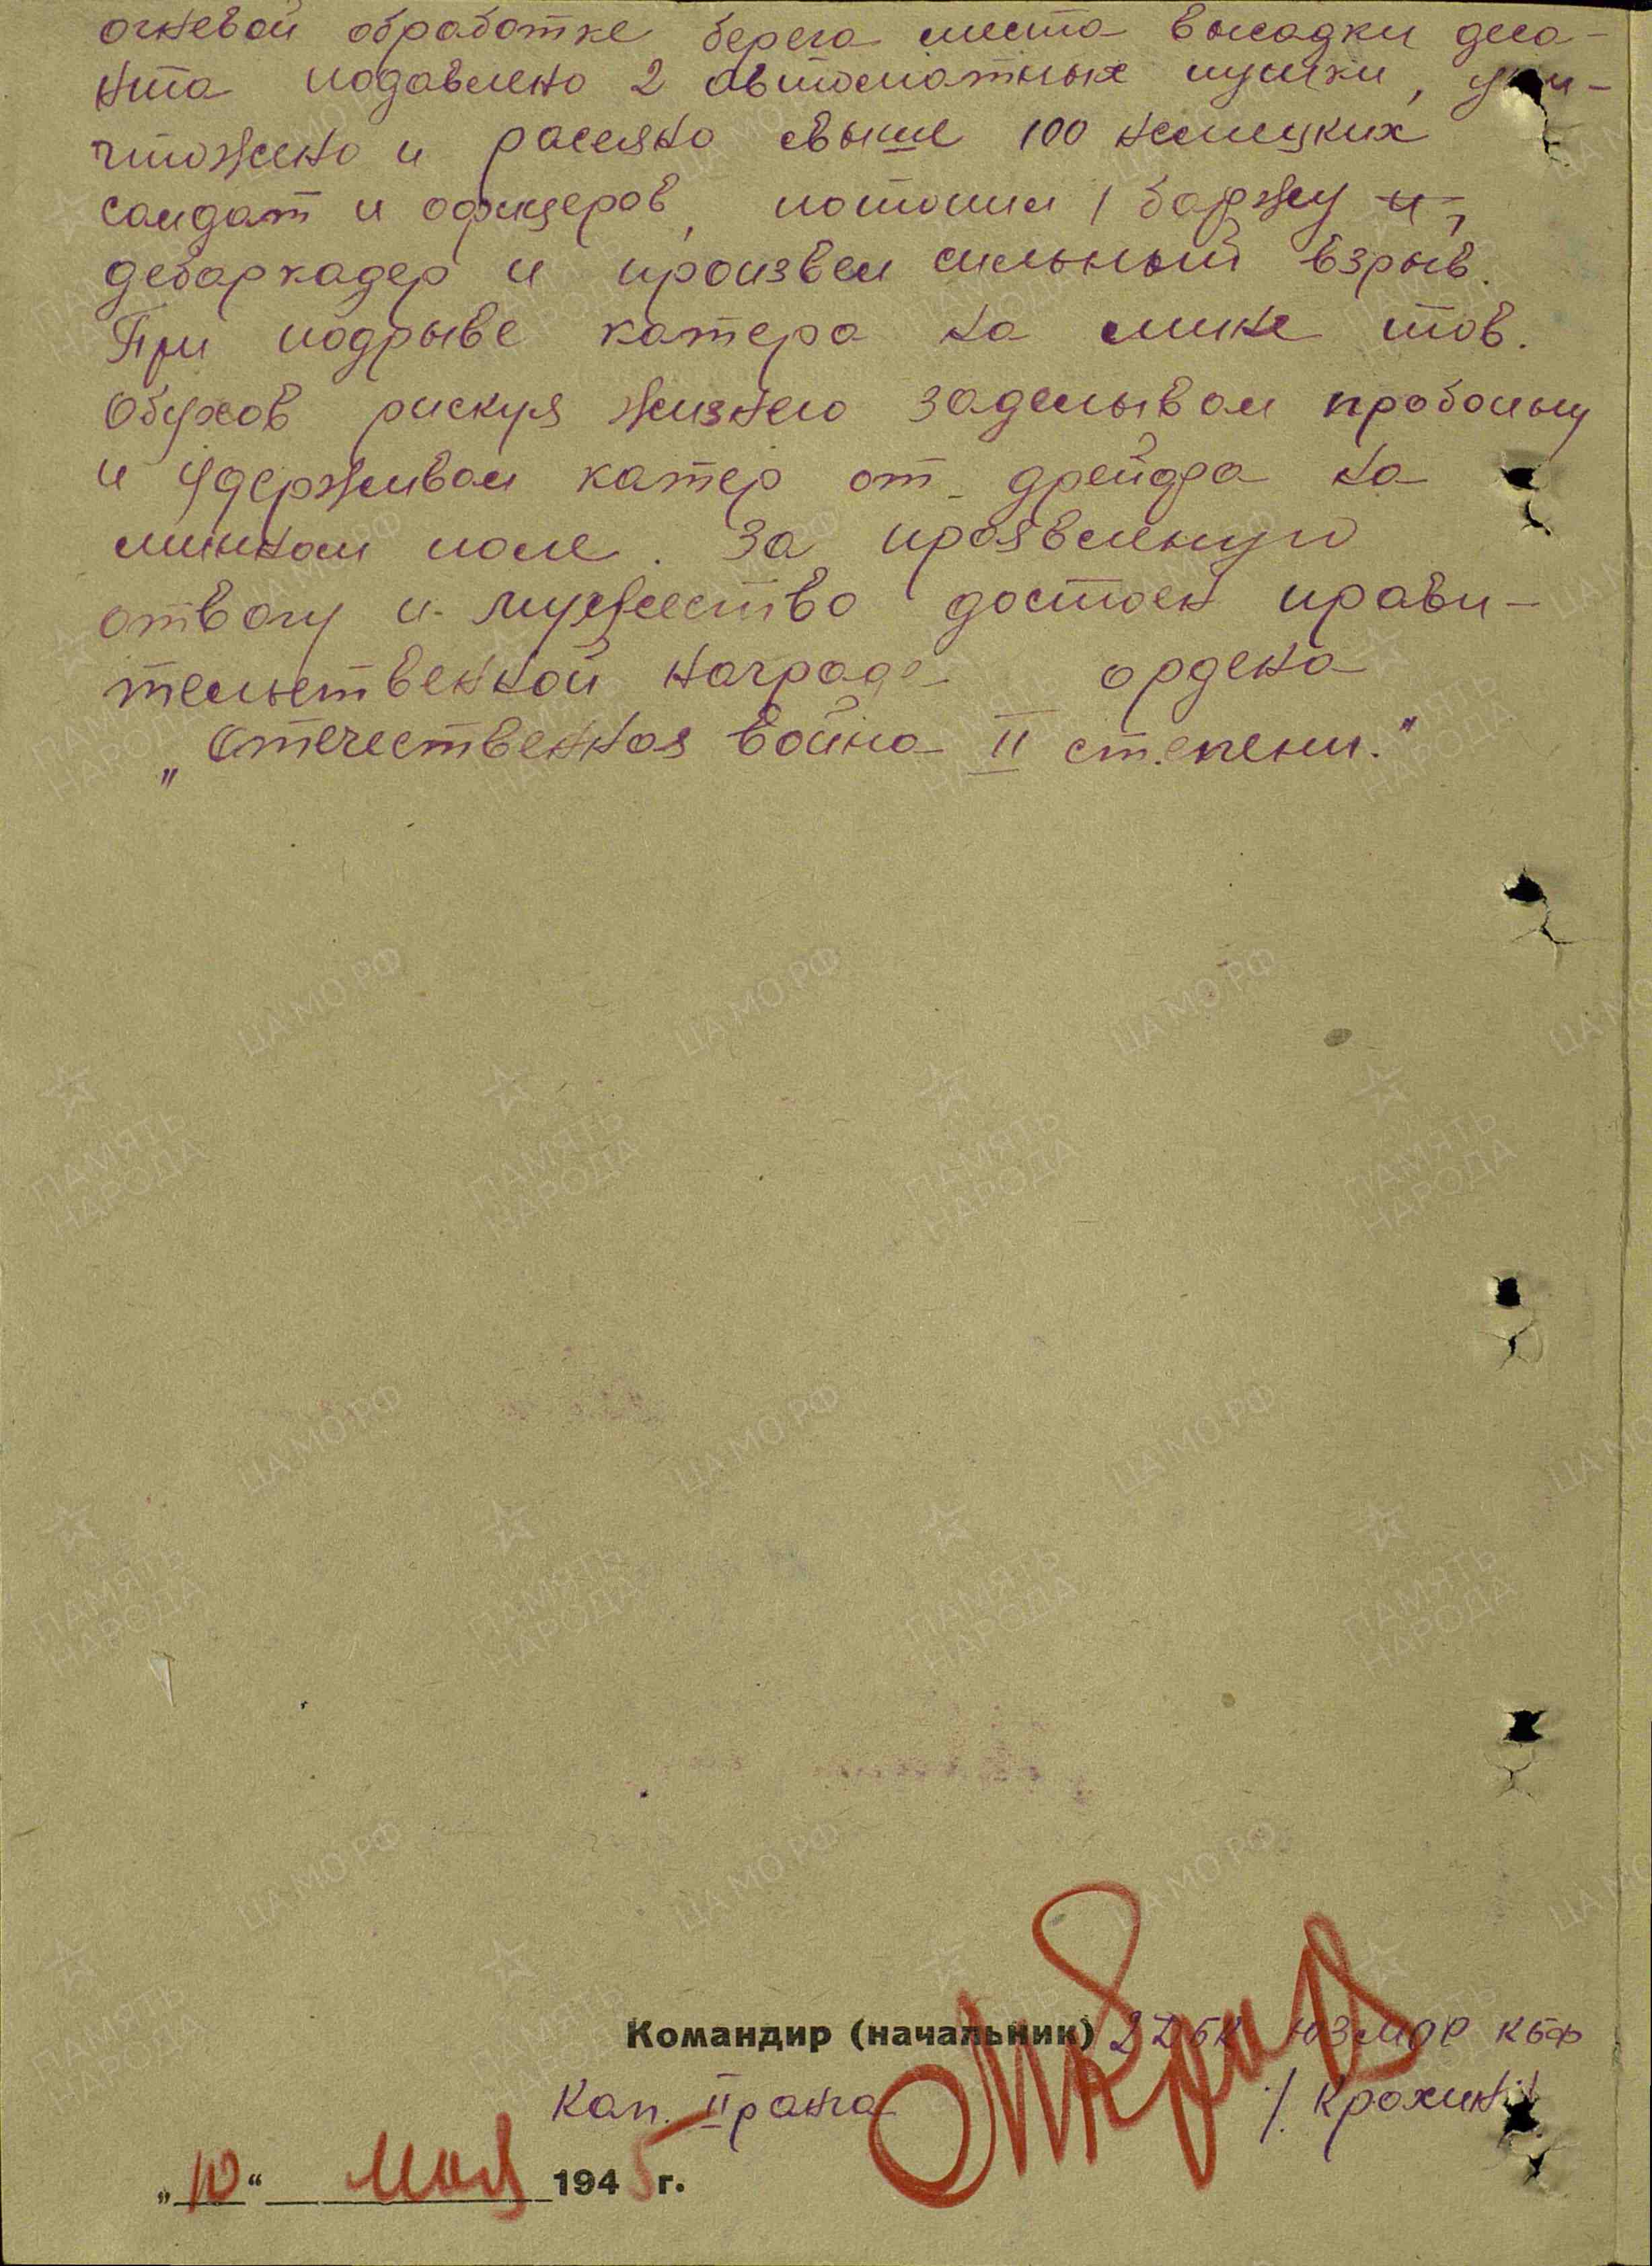 огневой обработке берега места высадки деса-
нта подавлено 2 автоматных пушки, уни-
чтожено и рассеяно свыше 100 немецких
солдат и офицеров, потопил 1 баржу и,
дебаркадер и произвел сильный взрыв.
При подрыве катера на мине тов.
Обухов рискуя жизнею заделывал пробоину
и удерживал катер от дрейфа на
минном поле. За проявленую
отвагу и мужество достоен прави-
тельственной награде ордена
„Отечественная война II степени."
Командир (начальник) 2 ДБК ЮЗМОР КБФ
Кап. II ранга /Крохин/
„10“ мая 1945 г.
ЦА МО РФ
ПАМЯТЬ
НАРОДА